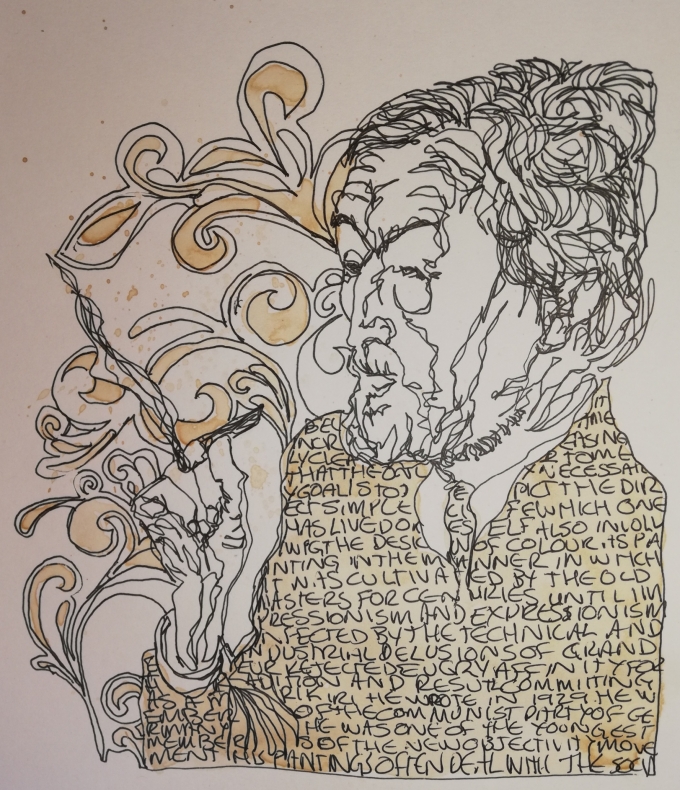 BEL THE
INCR ASING
LYCLE D TO ME
THAT THE ON NECESSAR
Y GOAL IS TO PICT THE DIR
ECT SIMPLE FE WHICH ONE
HAS LIVED OR ELF ALSO INVOLV
WPG THE DESK OF COLOUR. ITS PA
NTING IN THE M ANNER IN WHICH
IT WTS CULTIVA ED BY THE OLD
MASTERS FOR CEN URIES UNTIL IM
RESSIONISM AND EXPRESSIONISM
NFECTED BY THE TECHNICAL AND
NDUSTRIAL DELUSIONS OF GRAND
EUR REJECTED EVERY AFFINITY FOR
AUTION AND RESULT COMMITTING
HE WROTE IN 1929. HE W
AS A M EMBER OF THE COMMUNIST PARTY OF GE
RMANY HE WAS ONE OF THE YOUNGEST
MEMBER S OF THE NEW OBJECTIVITY MOVE
MENT HIS PAINTINGS OFTEN DEAL WITH THE SOCI